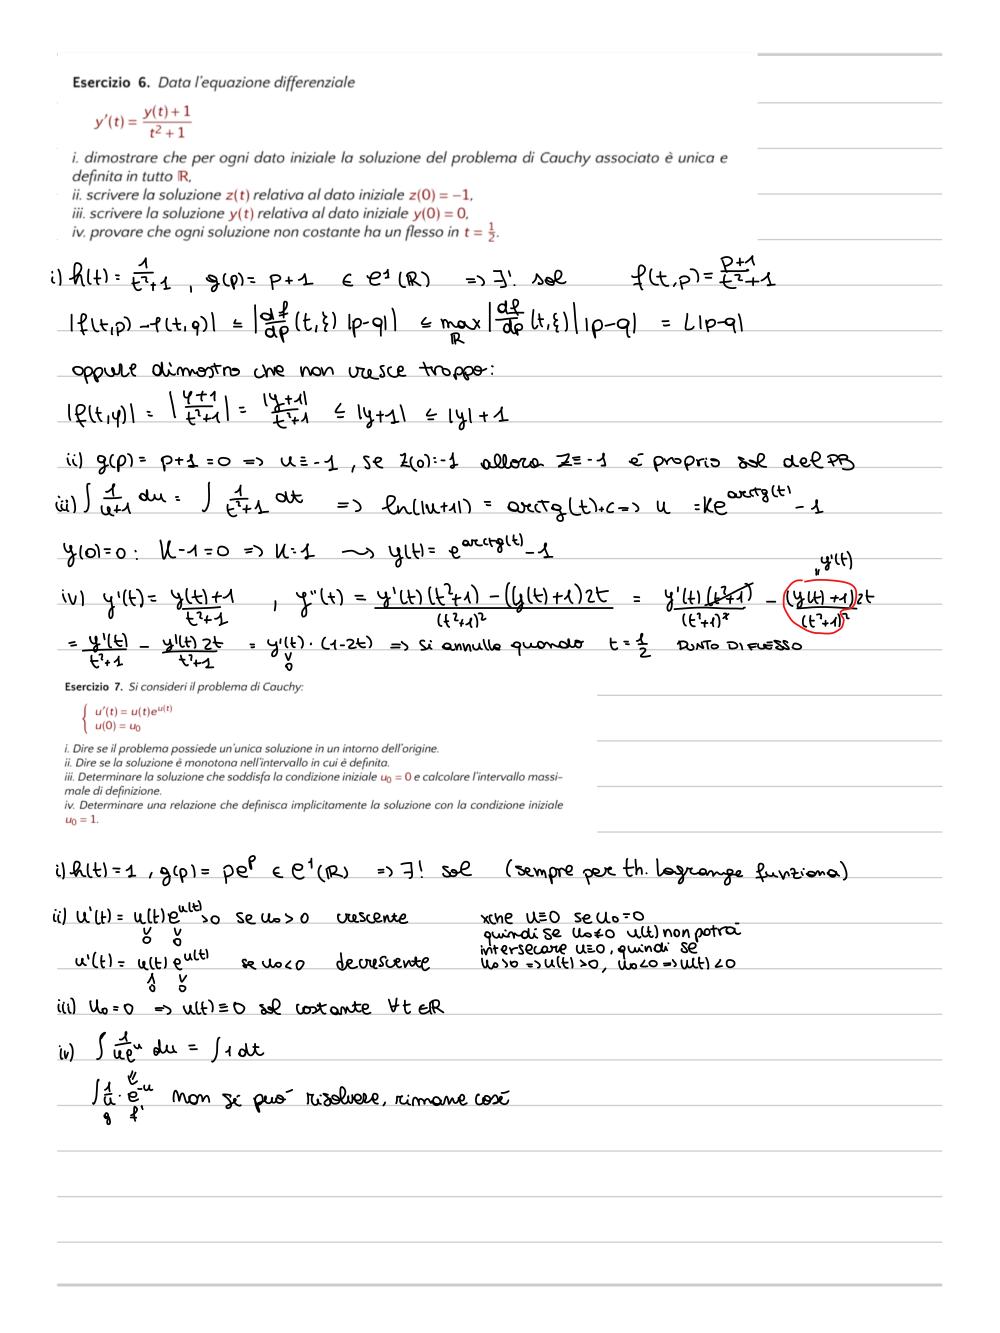 Esercizio 6. Data l'equazione differenziale
y'(t) = (y(t) + 1)/(t² + 1)
i. dimostrare che per ogni dato iniziale la soluzione del problema di Cauchy associato è unica e
definita in tutto ℝ,
ii. scrivere la soluzione z(t) relativa al dato iniziale z(0) = −1,
iii. scrivere la soluzione y(t) relativa al dato iniziale y(0) = 0,
iv. provare che ogni soluzione non costante ha un flesso in t = 1/2.
i) h(t) = 1/(t²+1) , g(p) = p+1 ∈ C¹(ℝ) => ∃! sol f(t,p) = (p+1)/(t²+1)
|f(t,p) − f(t,q)| ≤ |df/dp (t,ξ) |p−q|| ≤ max_ℝ |df/dp (t,ξ)| |p−q| = L|p−q|
oppure dimostro che non cresce troppo:
|f(t,y)| = |(y+1)/(t²+1)| = |y+1|/(t²+1) ≤ |y+1| ≤ |y|+1
ii) g(p) = p+1 = 0 => u ≡ −1 , se z(0) = −1 allora z ≡ −1 è proprio sol del PB
iii) ∫ 1/(u+1) du = ∫ 1/(t²+1) dt => ln(|u+1|) = arctg(t)+c => u = Ke^(arctg(t)) − 1
y(0)=0 : K−1=0 => K=1 ⇝ y(t) = e^(arctg(t)) − 1
y'(t)
iv) y'(t) = (y(t)+1)/(t²+1) , y''(t) = (y'(t)(t²+1) − ((y(t)+1)2t)/(t²+1)² = y'(t)(t²+1)/(t²+1)² − (y(t)+1)2t/(t²+1)²
= y'(t)/(t²+1) − y'(t)2t/(t²+1) = y'(t) · (1−2t) => si annulla quando t = 1/2 PUNTO DI FLESSO
v 0
Esercizio 7. Si consideri il problema di Cauchy:
{ u'(t) = u(t)e^u(t)
u(0) = u₀
i. Dire se il problema possiede un'unica soluzione in un intorno dell'origine.
ii. Dire se la soluzione è monotona nell'intervallo in cui è definita.
iii. Determinare la soluzione che soddisfa la condizione iniziale u₀ = 0 e calcolare l'intervallo massi-
male di definizione.
iv. Determinare una relazione che definisca implicitamente la soluzione con la condizione iniziale
u₀ = 1.
i) h(t) = 1 , g(p) = pe^p ∈ C¹(ℝ) => ∃! sol (sempre per th. Lagrange funziona)
ii) u'(t) = u(t)e^u(t) >0 se u₀ > 0 crescente
v 0 v 0
u'(t) = u(t) e^u(t) se u₀<0 decrescente
∧ 0 v 0
xche u≡0 se u₀=0
quindi se u₀≠0 u(t) non potrà
intersecare u≡0, quindi se
u₀>0 => u(t)>0, u₀<0 => u(t)<0
iii) u₀=0 => u(t)≡0 sol costante ∀t∈ℝ
iv) ∫ 1/(ue^u) du = ∫1 dt
∫ 1/u · e^-u non si può risolvere, rimane così
g f'